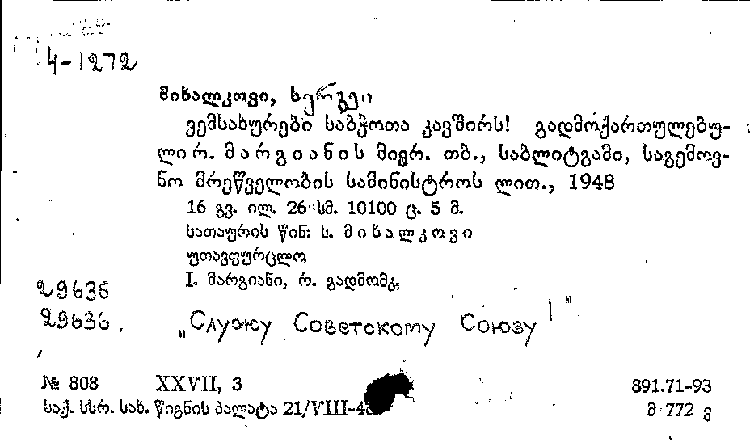 4-1272
მიხალკოვი, სერგეი
ვემსახურები საბჭოთა კავშირს! გადმოქართულებუ-
ლი რ. მარგიანის მიერ. თბ., საბლიტგამი, საგემოვ-
ნო მრეწველობის სამინისტროს ლით., 1948
16 გვ. ილ. 26 სმ. 10100 ც. 5 მ.
სათაურის წინ: ს. მიხალკოვი
უთავფურცლო
I. მარგიანი, რ. გადმომკ.
29635
29636.
„Служу Советскому Союзу!"
№ 808 XXVII, 3 891.71-93
საქ. სსრ. სახ. წიგნის პალატა 21/VIII-4 მ 772 ვ